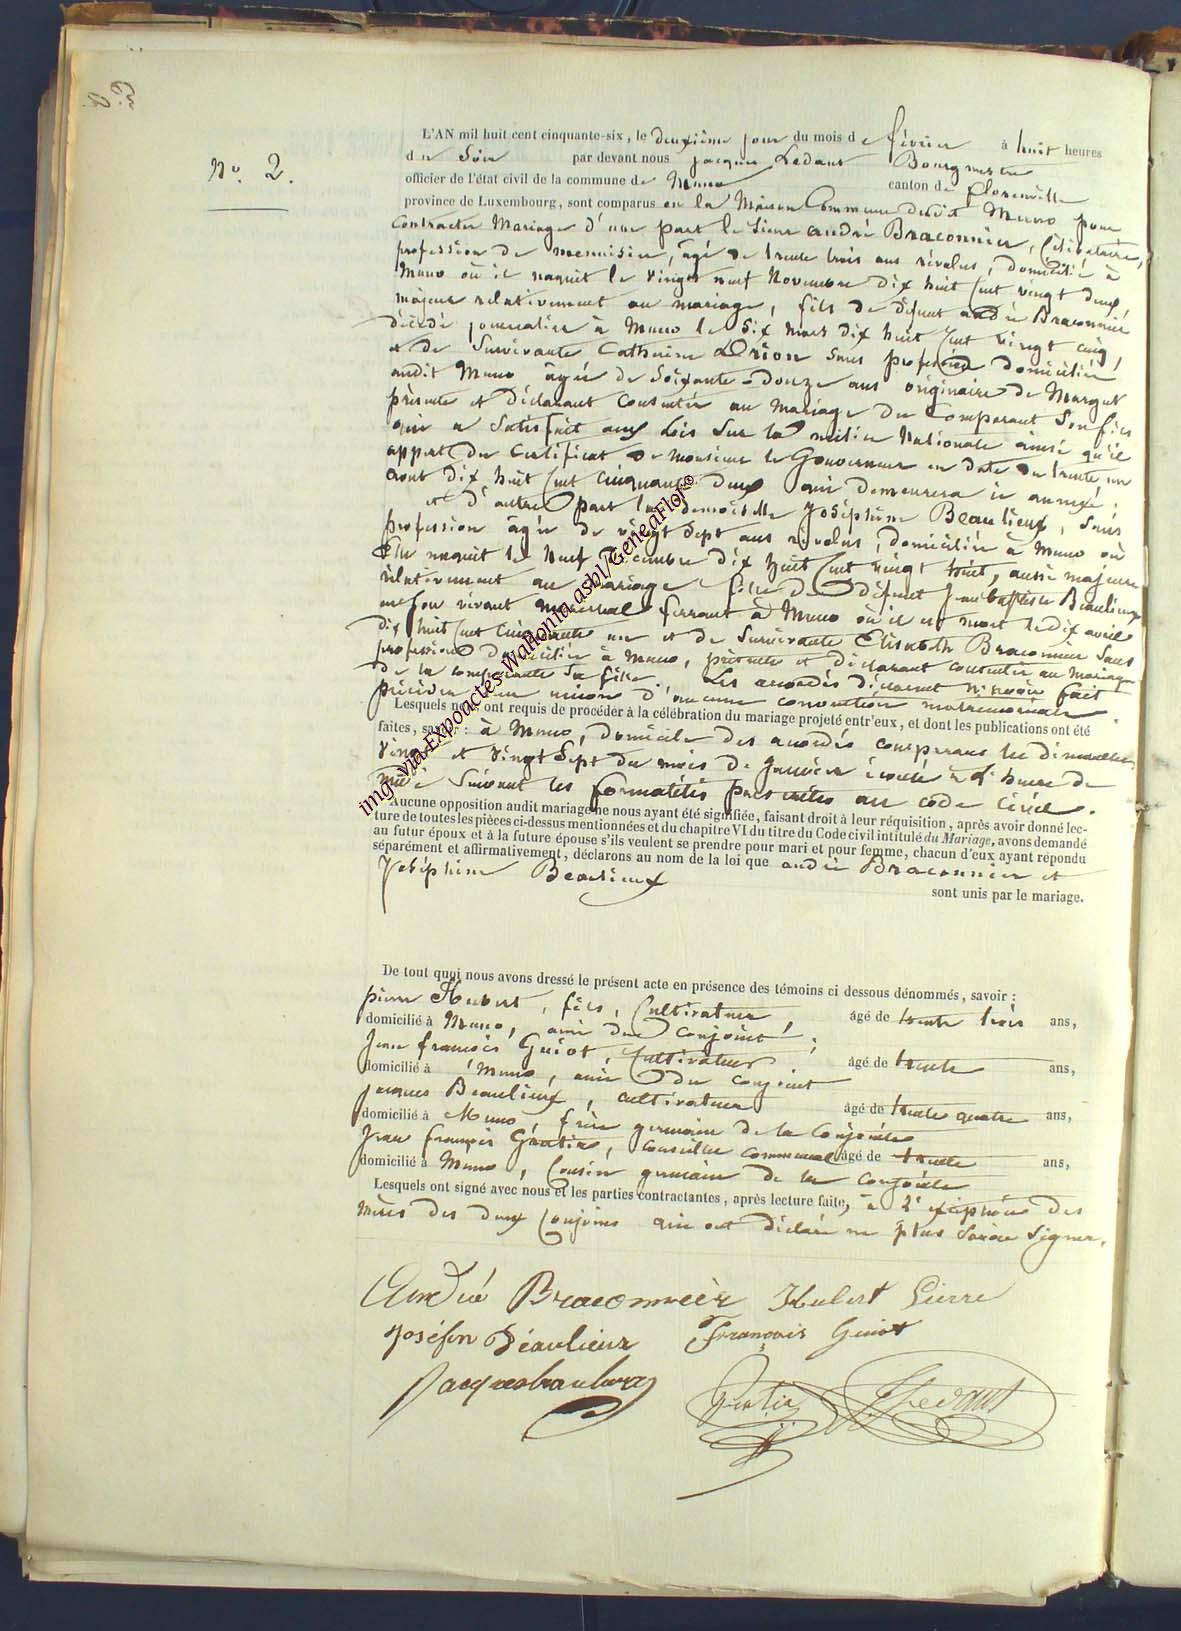 N°. 2.
L'AN mil huit cent cinquante-six, le deuxième jour du mois de février à huit heures
du Soir par devant nous jacques Ledant Bourgmestre
officier de l'état civil de la commune de Muno canton de florenville
province de Luxembourg, sont comparus en la Maison Commune dudit Muno pour
Contracter Mariage d'une part le Sieur andré Braconnier, Célibataire,
profession de menuisier, âgé de trente trois ans révolus, domicilié à
Muno où il naquit le vingt neuf Novembre dix huit Cent vingt deux,
majeur relativement au mariage, fils de défunt andré Braconnier
décédé journalier à Muno le Six mars dix huit Cent vingt cinq,
et de Survivante Catherine Orion Sans profession domiciliée
audit Muno âgée de Soixante-douze ans originaire de Margut
présente et déclarant consentir au mariage du Comparant Son fils
qui a Satisfait aux lois Sur la milice Nationale ainsi qu'il
appert du Certificat de Monsieur le Gouverneur en date du trente un
aout dix huit Cent cinquante deux qui demeurera ici annexé;
et d'autre part la demoiselle Joséphine Beaulieux, Sans
profession âgée de vingt Sept ans révolus, domiciliée à Muno où
Elle naquit le Neuf Décembre dix huit Cent vingt huit, aussi majeure
relativement au mariage fille de défunt Jean baptiste Beaulieux
en Son vivant Maréchal ferrant à Muno où il est mort le dix avril
dix huit Cent cinquante un et de Survivante Elisabeth Braconnier Sans
profession domiciliée à Muno, présente et déclarant consentir au Mariage
de la comparante Sa fille. Les accordés déclarent n'avoir fait
précéder leur union d'aucune convention matrimoniale.
Lesquels nous ont requis de procéder à la célébration du mariage projeté entr'eux, et dont les publications ont été
faites, savoir: à Muno, domicile des accordés comparans les dimanches
Vingt et Vingt Sept du mois de Janvier écoulé à L'heure de
Midi Suivant les formalités prescrites au code Civil.
Aucune opposition audit mariage ne nous ayant été signifiée, faisant droit à leur réquisition, après avoir donné lec-
ture de toutes les pièces ci-dessus mentionnées et du chapitre VI du titre du Code civil intitulé du Mariage, avons demandé
au futur époux et à la future épouse s'ils veulent se prendre pour mari et pour femme, chacun d'eux ayant répondu
séparément et affirmativement, déclarons au nom de la loi que andré Braconnier et
Joséphine Beaulieux
sont unis par le mariage.
De tout quoi nous avons dressé le présent acte en présence des témoins ci dessous dénommés, savoir:
pierre Hubert, fils, Cultivateur âgé de trente trois ans,
domicilié à Muno, ami du Conjoint;
Jean françois Guiot, Cultivateur âgé de trente ans,
domicilié à Muno, ami du conjoint
jacques Beaulieux, cultivateur âgé de trente quatre ans,
domicilié à Muno, frère germain de la Conjointe
Jean françois Gratia, Conseiller communal âgé de trente ans,
domicilié à Muno, Cousin germain de la Conjointe
Lesquels ont signé avec nous et les parties contractantes, après lecture faite, à L'exception des
mères des deux Conjoins qui ont déclaré ne plus Savoir Signer.
André Braconnièr Hubert Pierre
Joséfin Béaulieux François Guiot
Jacques beaulieux Gratia JLedant
img via Expoactes-Wallonia asbl/GeneaFlor©